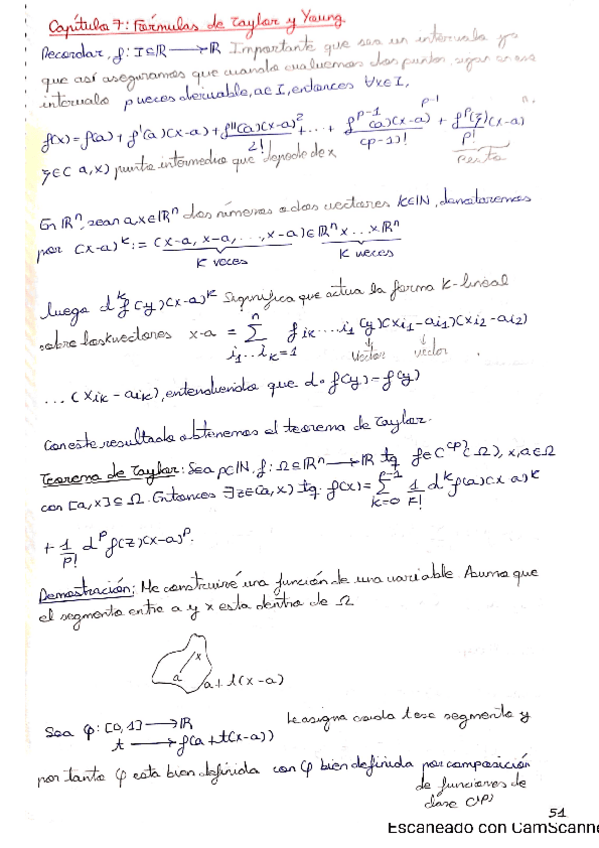 Capítulo 7: Fórmulas de Taylor y Young
Recordar, f: I⊆ℝ → ℝ Importante que sea un intervalo ya
que así aseguramos que cuando evaluemos dos puntos, sigan en ese
intervalo p veces derivable, a∈I, entonces ∀x∈I,
f(x) = f(a) + f'(a)(x-a) + f''(a)(x-a)²/2! + ... + f^{p-1}(a)(x-a)^{p-1}/(p-1)! + f^p(ξ)(x-a)^p/p!
resto
ξ∈(a,x) punto intermedio que depende de x
En ℝⁿ, sean a,x∈ℝⁿ dos números o dos vectores k∈ℕ, denotaremos
por (x-a)^k := (x-a, x-a, ..., x-a) ∈ ℝⁿ x ... x ℝⁿ
k veces k veces
luego d^k f(y)(x-a)^k Significa que actua la forma k-lineal
sobre los k vectores x-a = Σ_{i₁..i_k=1}^n f_{i_k....i₁}(y)(x_{i₁}-a_{i₁})(x_{i₂}-a_{i₂})
vector vector
... (x_{i_k} - a_{i_k}), entendiendo que d⁰f(y) = f(y)
Con este resultado obtenemos el teorema de Taylor.
Teorema de Taylor: Sea p∈ℕ, f: Ω⊆ℝⁿ → ℝ tq f∈C^{(p)}(Ω), x,a∈Ω
con [a,x]⊆Ω. Entonces ∃z∈(a,x) tq. f(x) = Σ_{k=0}^{p-1} 1/k! d^k f(a)(x a)^k
+ 1/p! d^p f(z)(x-a)^p.
Demostración: Me construiré una función de una variable Asumo que
el segmento entre a y x esta dentro de Ω
x
a
a+t(x-a)
Sea φ: [0,1] → ℝ le asigna cada t ese segmento y
t → f(a+t(x-a))
por tanto φ esta bien definida con φ bien definida por composición
de funciones de
clase C^{(p)}
51
Escaneado con CamScanne